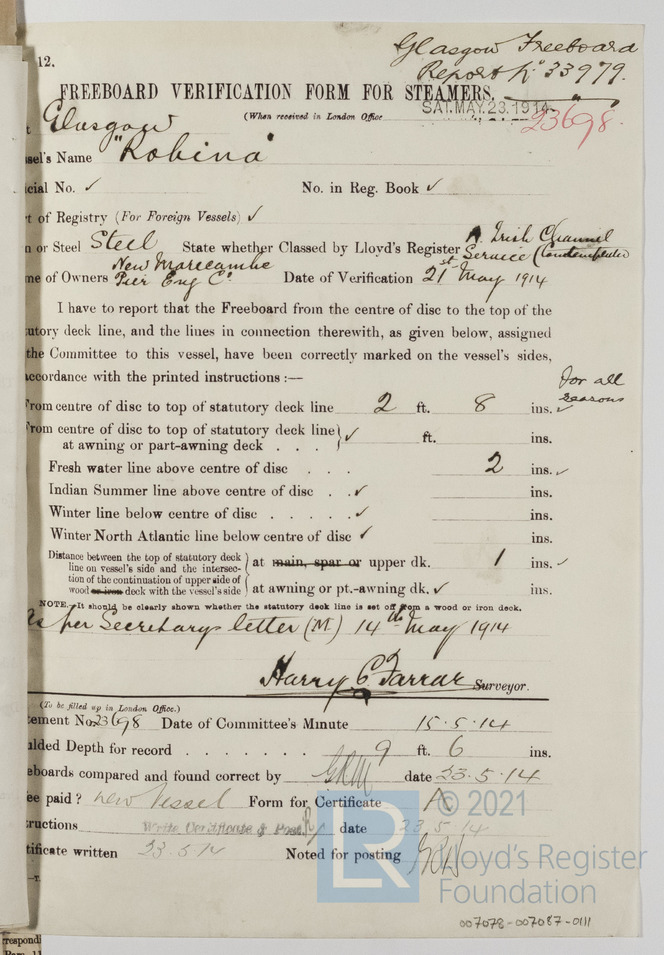 12.
Glasgow Freeboard
Report No 33979.
FREEBOARD VERIFICATION FORM FOR STEAMERS.
(When received in London Office
SAT. MAY. 23. 1914
23698.
t Glasgow
sel's Name "Robina"
cial No. ✓ No. in Reg. Book ✓
t of Registry (For Foreign Vessels) ✓
n or Steel Steel State whether Classed by Lloyd's Register A. Irish Channel Service (Contemplated)
me of Owners New Morecambe Pier Eng Co. Date of Verification 21st May 1914
I have to report that the Freeboard from the centre of disc to the top of the
utory deck line, and the lines in connection therewith, as given below, assigned
the Committee to this vessel, have been correctly marked on the vessel's sides,
accordance with the printed instructions :—
for all seasons
From centre of disc to top of statutory deck line 2 ft. 8 ins. ✓
From centre of disc to top of statutory deck line
at awning or part-awning deck . . . ✓ ft. ins.
Fresh water line above centre of disc . . . 2 ins. ✓
Indian Summer line above centre of disc . . ✓ ins.
Winter line below centre of disc . . . . . ✓ ins.
Winter North Atlantic line below centre of disc ✓ ins.
Distance between the top of statutory deck
line on vessel's side and the intersec-
tion of the continuation of upper side of
wood or iron deck with the vessel's side
at main, spar or upper dk. 1 ins. ✓
at awning or pt.-awning dk. ✓ ins.
NOTE.—It should be clearly shown whether the statutory deck line is set off from a wood or iron deck.
As per Secretarys letter (M) 14th May 1914
Harry C. Farrar Surveyor.
(To be filled up in London Office.)
tement No. 23698 Date of Committee's Minute 15.5.14
ulded Depth for record . . . . . . . 9 ft. 6 ins.
eboards compared and found correct by date 23.5.14
ee paid? new Vessel Form for Certificate A
ructions Write Certificate & Post. date 23.5.14
tificate written 23.5.14 Noted for posting
—T.
© 2021
LR
Lloyd's Register
Foundation
007078-007087-0111
respond